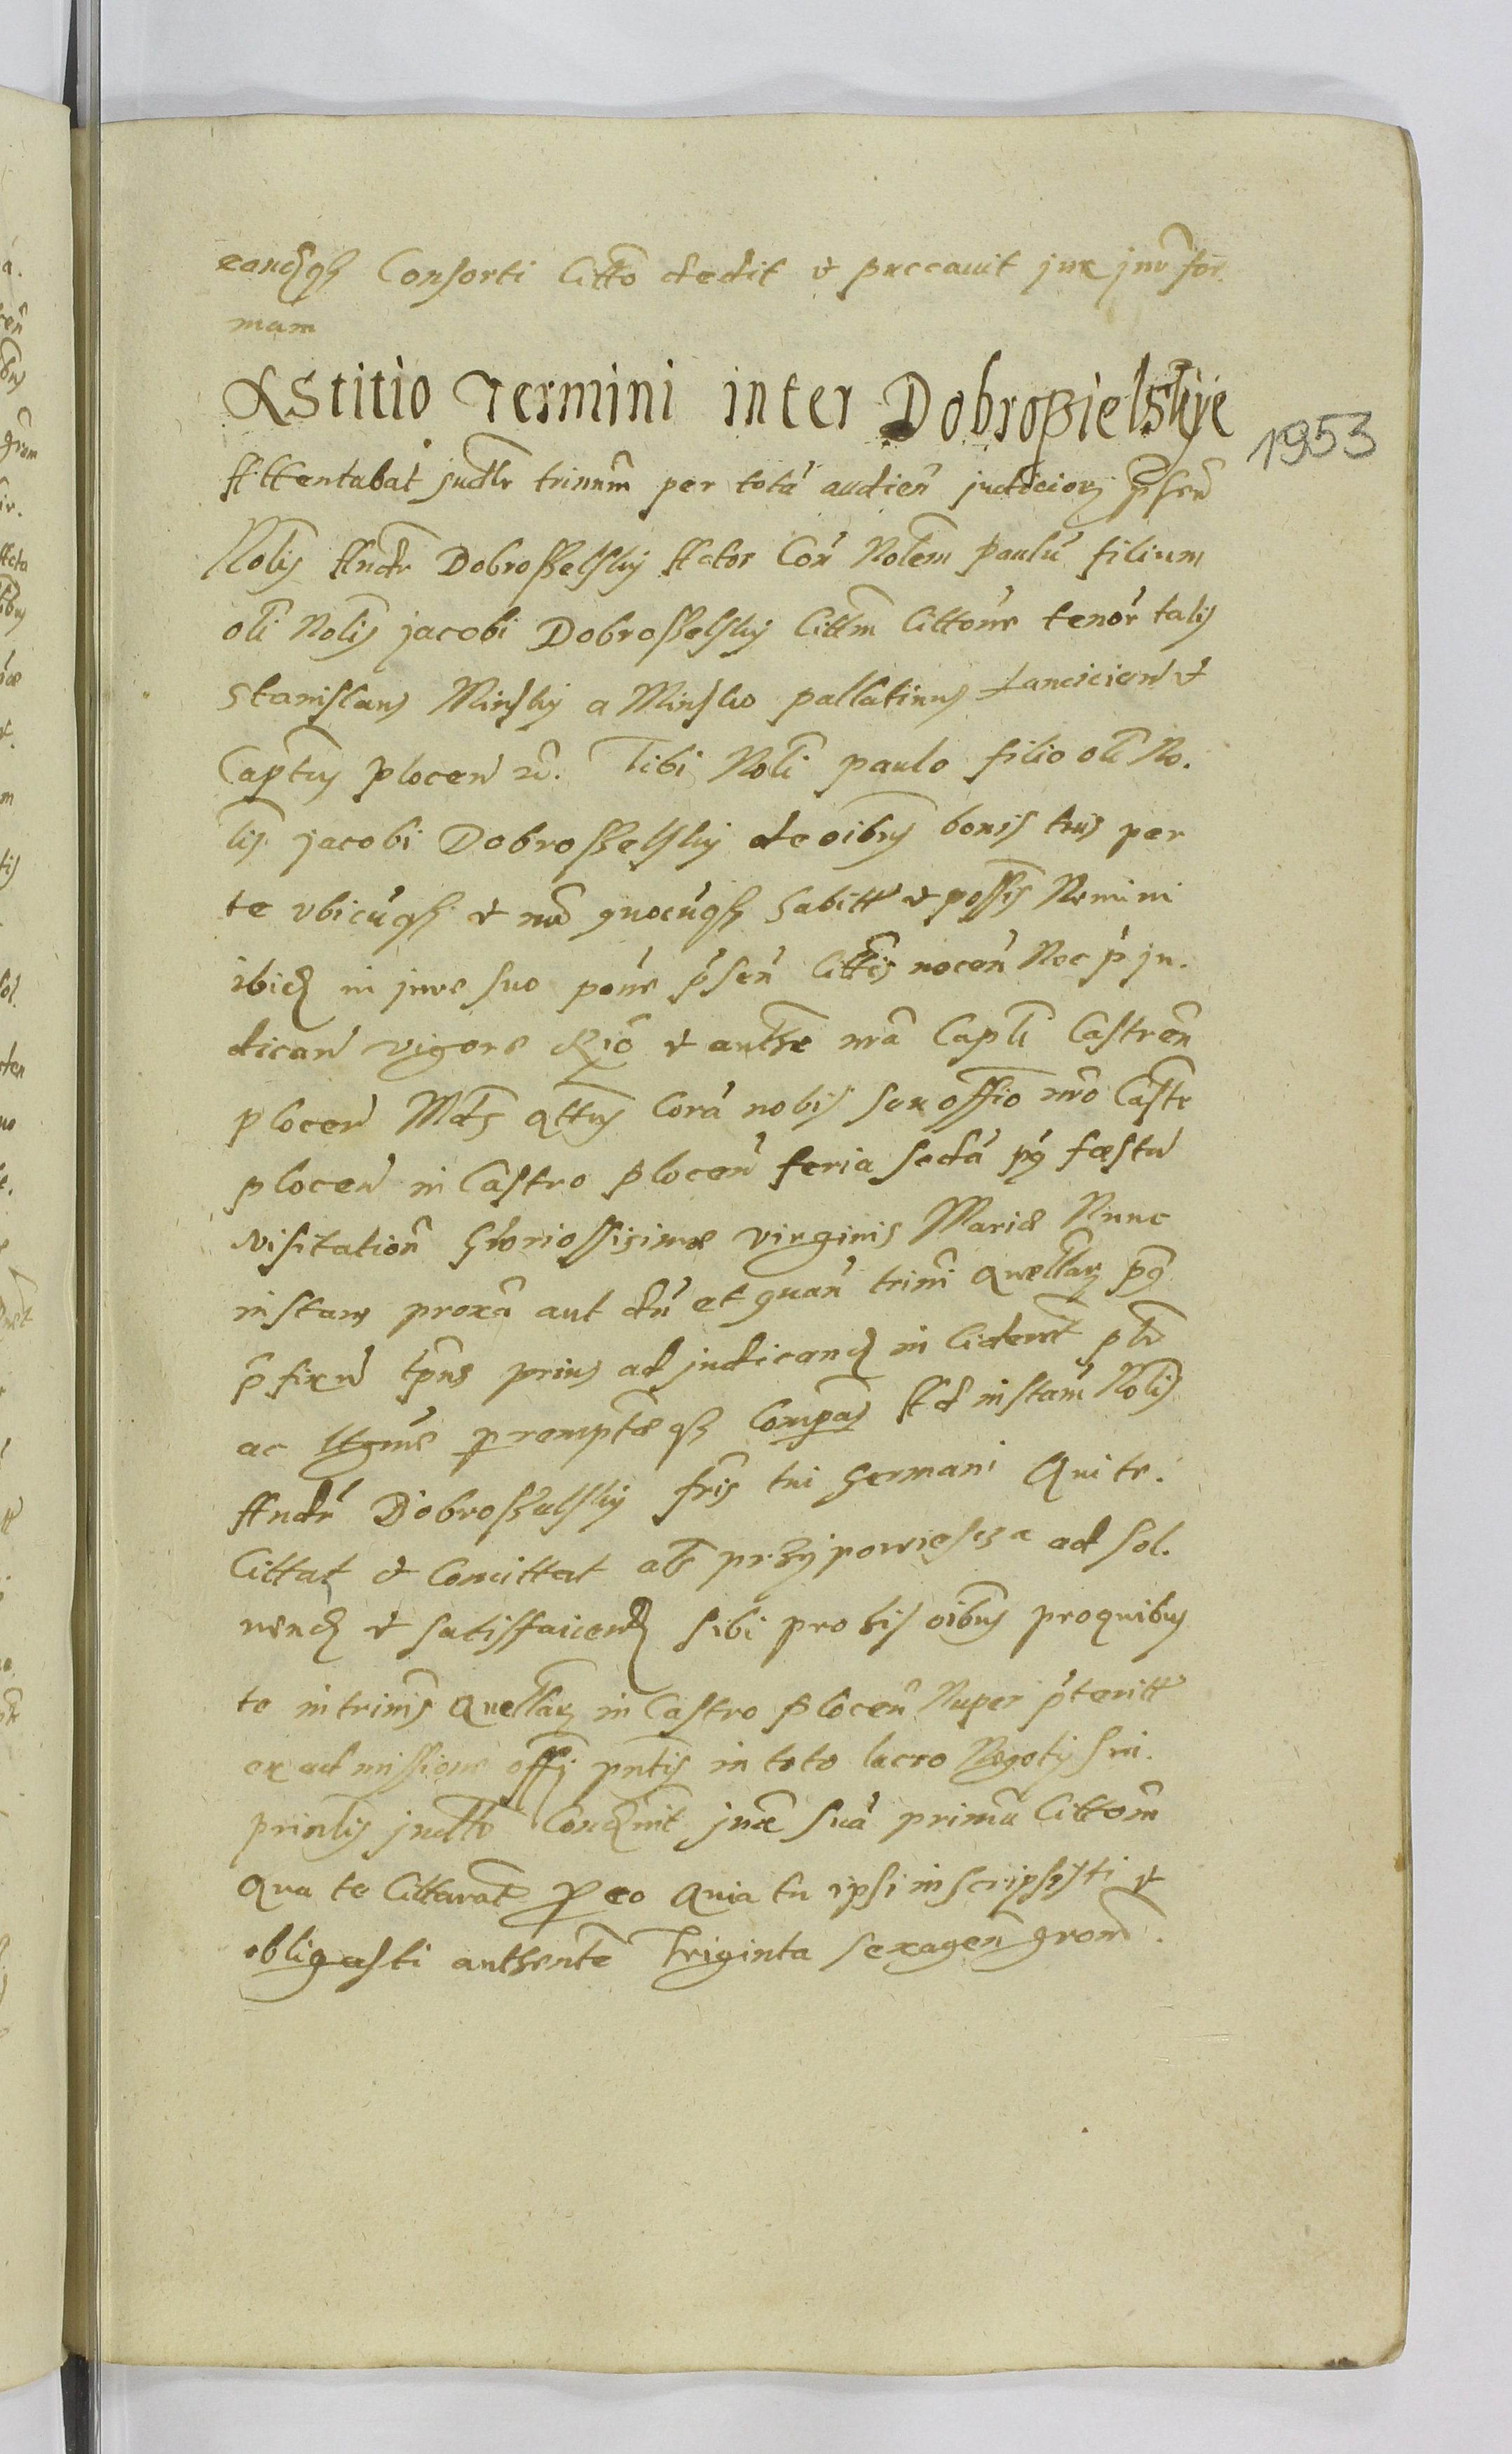 eandqʒ Consorti Citto dedit et paccavit jux juris for
mam
Astitio Termini inter Dobropielskye
1953
Attentabat judlr trinum per totā audien judiciorʒ psen
Nobis Andr Dobrosselsky Actor Con Nolem paulū filium
oli Nolis jacobi Dobrosselsky Cittm Cittone tenor talis
Stanislaus Minsky a Minsko pallatinus Lancicien et
Captus plocen rc. Tibi Noli paulo filio oli No.
lis jacobi Dobrosselsky de oibus bonis tuis per
te vbicuqʒ et quocuqʒ habitt et possis Nemini
ibid in jure suo pone psen Cittis nocen Nec p ju.
dican vigore et authe nra Capli Castren
plocen Mds qttus Corā nobis seu offio nro Castr
plocen in Castro plocen feria sedā pʒ festu
visitation Gloriossisimæ virginis Mariæ Nunc
instan proxa aut dū et quan trini Quellarʒ
pfixu tpus prius ad judicand in Ciderit
ac ltgme prompteqʒ Compas Ad instan Nolis
Andr Dobrosselsky fris tui Germani Qui te
Cittat et Concittat ab przypowiescza ad sol.
uend et satisffaciend sibi pro his oibus pro quibus
te in trinis Quellarʒ in Castro plocen Nuper pteritt
ex admissione offy pntis in toto lucro Negoty sui
prinlis judlr Condnit juxta suā primā Cittom
Qua te Cittarat Pro eo Quia tu ipsi inscripsisti et
obligasti authente Triginta sexagen grom